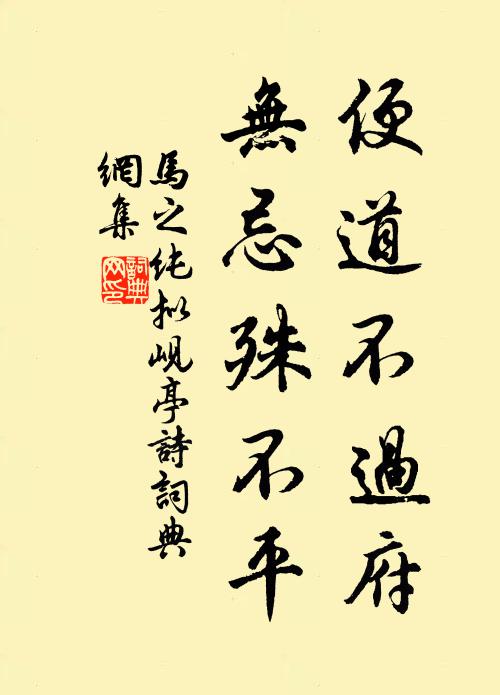 便道不過府
無忌殊不平
馬之純拟峴亭詩詞典
網集
詞典網印